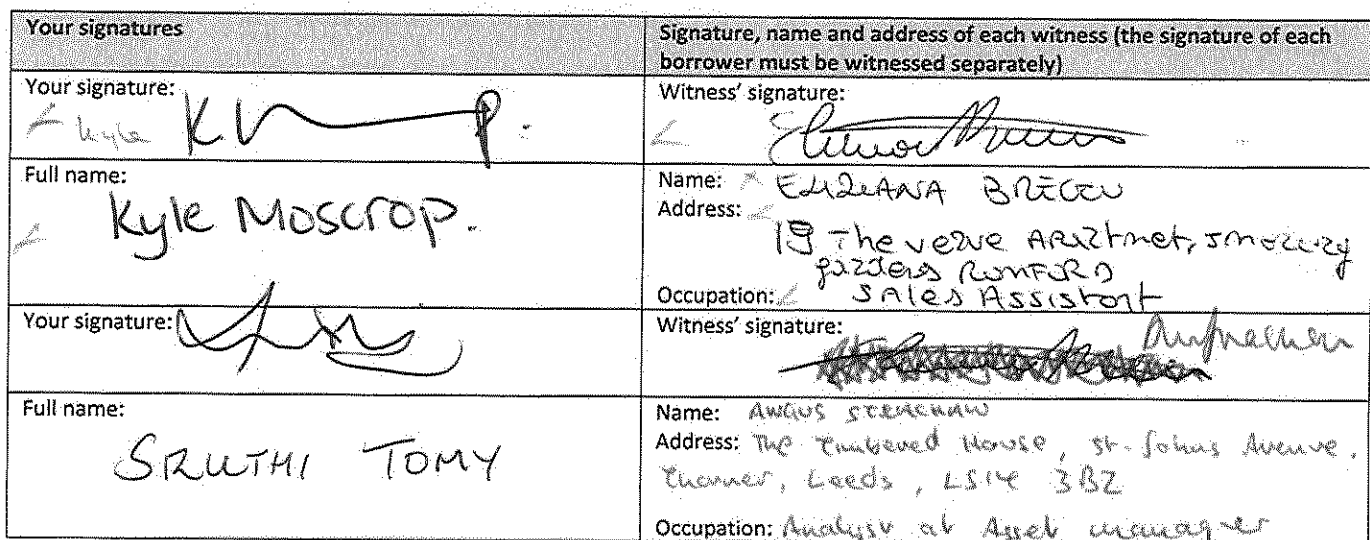 Your signatures
Signature, name and address of each witness (the signature of each
borrower must be witnessed separately)
Your signature:
Kyle
Witness' signature:
Full name:
Kyle Moscrop.
Name:
Address:
19 The verve
ROMFORD
Occupation: SAles Assistant
Your signature:
Witness' signature:
Full name:
SRUTHI TOMY
Name: ANGUS STRACHAN
Address: The Timbered House, St. Johns Avenue,
Thorner, Leeds, LS14 3BZ
Occupation: Analyst at Asset manager